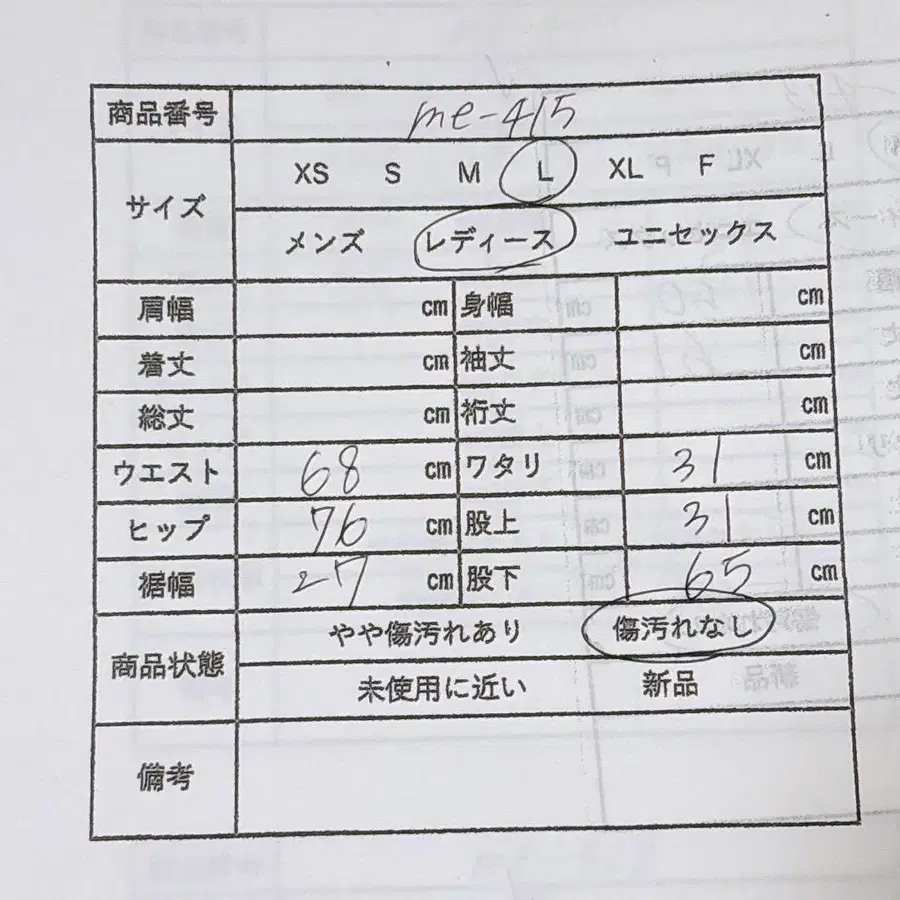 商品番号 me-415
サイズ XS S M L XL F
メンズ レディース ユニセックス
肩幅 cm 身幅 cm
着丈 cm 袖丈 cm
総丈 cm 裄丈 cm
ウエスト 68 cm ワタリ 31 cm
ヒップ 76 cm 股上 31 cm
裾幅 27 cm 股下 65 cm
商品状態 やや傷汚れあり 傷汚れなし
未使用に近い 新品
備考